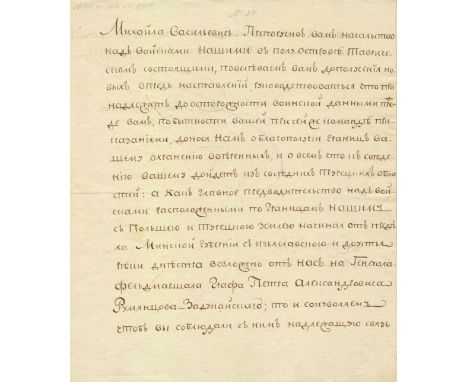 № 34
Михайла Васильевич. Препоруча вамъ начальство
надъ войсками нашими въ полуостровѣ Таврическомъ
состоящими, повелѣваемъ вамъ до положенія но
выхъ впредь наставленій, руководствоваться что при
надлежитъ до осторожности воинской данными преж
де вамъ, по бытности вашей при сей же командѣ при
казаніями, донося Намъ о благополучіи границъ ва
шему охраненію ввѣренныхъ, и о всемъ что къ свѣде
нію вашему дойдетъ изъ сосѣднихъ Турецкихъ обла
стей: а какъ главное предводительство надъ вой
сками расположенными по границамъ нашимъ
съ Польшею и Турецкою землею начиная отъ предѣ
ла Минской Губерніи съ Изяславскою и до устья
рѣки Днѣстра возложено отъ насъ на Генерала
Фельдмаршала Графа Петра Александровича
Румянцова Задунайскаго; то и соизволяемъ
чтобъ вы соблюдали съ нимъ надлежащую связь